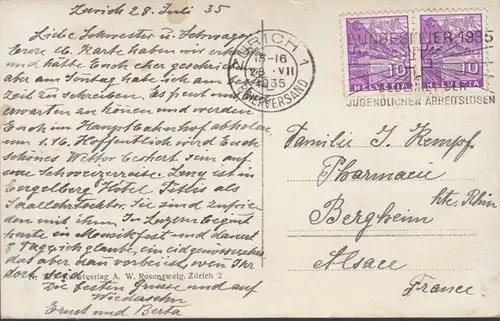 Zürich 28. Juli 35
Liebe Schwester u. Schwager
Eure Karte haben wir erhalten
und hätte Euch eher geschrieben
aber am Sonntag habe ich am
zeit zu schreiben. Es freut uns
erwarten zu können und werden
Euch im Hauptbahnhof abholen
am 1. Hoffentlich wird Euch
schönes Wetter beschert sein auf
Schweizerreise. Leny ist in
Engelberg Hotel Titlis als
Saallehrtochter. Sie sind zufrie-
den mit ihm. In Luzern beginnt
heute ein Musikfest und dauert
8 Tage ich glaube, ein eidgenössisches
das aber dann vorbei ist, wenn Ihr
dort seid.
verlag A. W. Rosenzweig, Zürich 2
Die besten Grüsse und auf
Wiedersehn
Ernst und Berta
ZÜRICH 1
15-16
28. VII
1935
BRIEFVERSAND
BUNDESFEIER 1935
JUGENDLICHEN ARBEITSLOSEN
10 10
HELVETIA HELVETIA
Familie J. Kempf
Pharmacie
Bergheim
Hte. Rhin
Alsace
France.